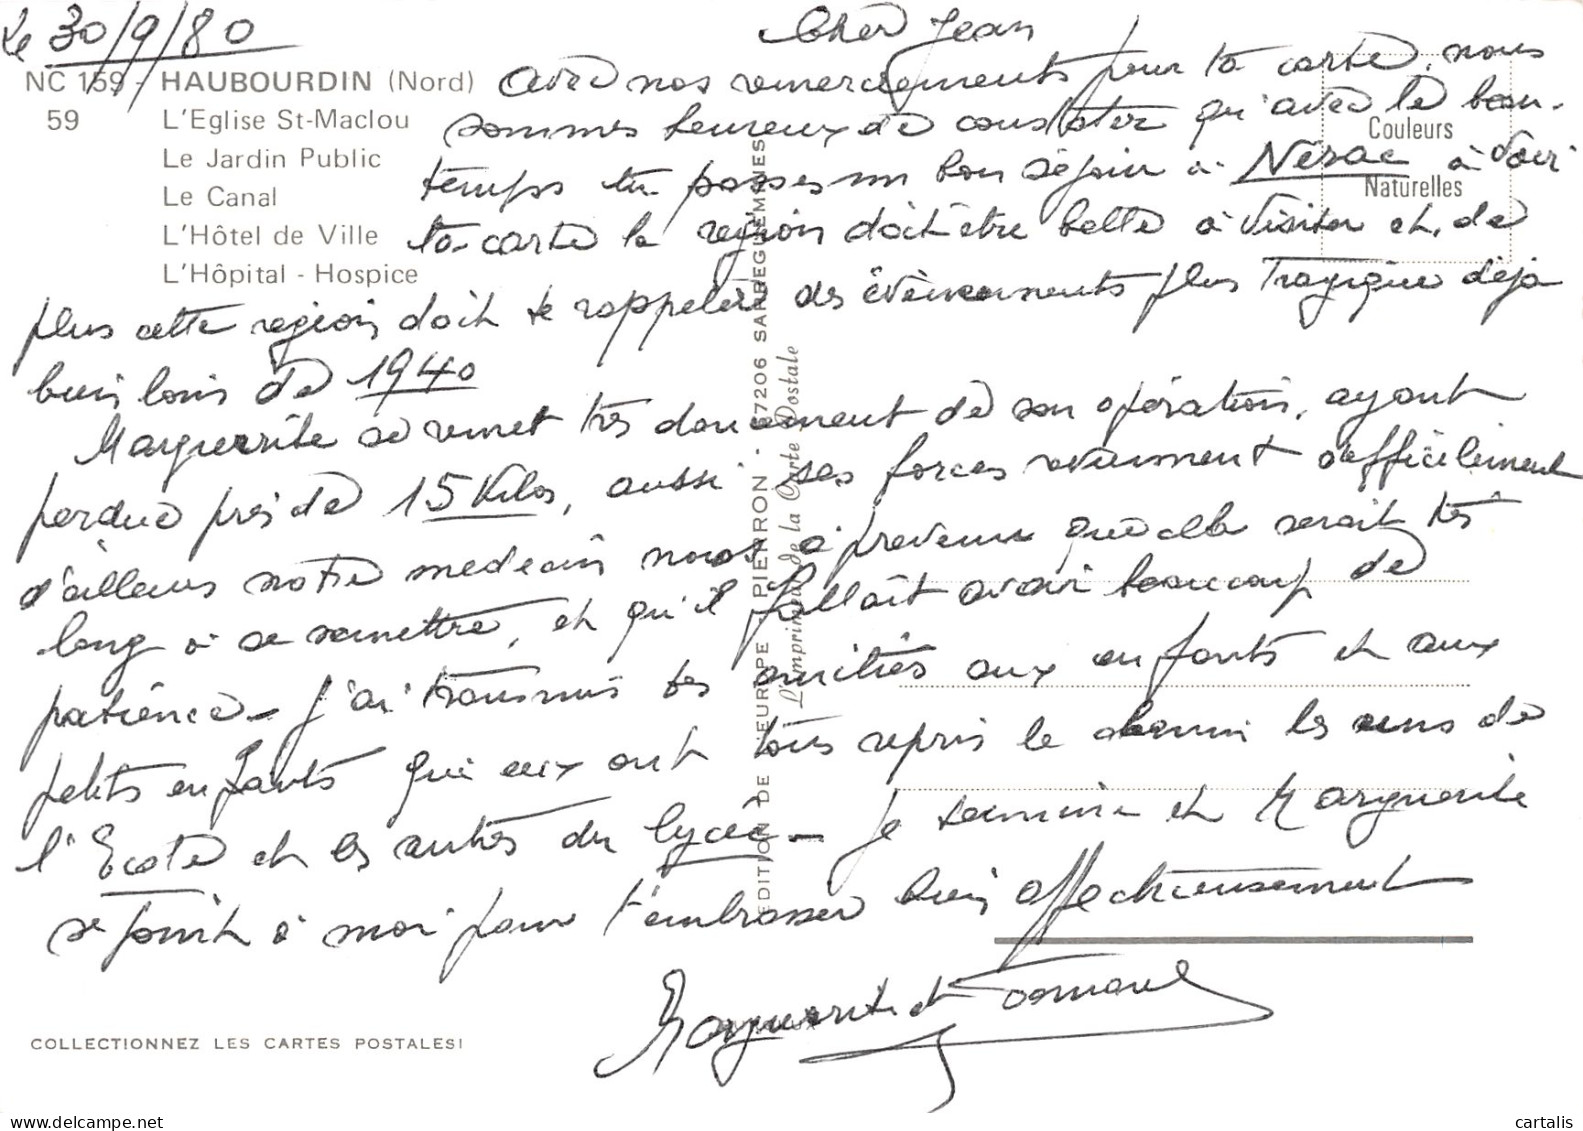 Le 30/9/80
Cher Jean
NC 159 - HAUBOURDIN (Nord)
59
L'Eglise St-Maclou
Le Jardin Public
Le Canal
L'Hôtel de Ville
L'Hôpital - Hospice
Couleurs
Naturelles
avec nos remerciements pour ta carte, nous
sommes heureux de constater qu'avec le beau
temps tu passes un bon séjour à Nérac à voir
ta carte la région doit être belle à visiter et, de
plus cette région doit te rappeler des évènements plus Tragique déja
bien loin de 1940
Marguerite se remet très doucement de son opération, ayant
perdue près de 15 Kilos, aussi ses forces reviennent difficilement
d'ailleurs notre medecin nous a prevenu que cela serait très
long à se remettre, et qu'il fallait avoir beaucoup de
patience - j'ai transmis tes amitiés aux enfants et aux
petits enfants qui eux ont tous repris le chemin les uns de
l'Ecole et les autres du lycée - je termine et Marguerite
se joint à moi pour t'embrasser bien affectueusement
Marguerite et
EDITION DE L'EUROPE PIERRON - 57206 SARREGUEMINES
L'imprimeur de la Carte Postale
COLLECTIONNEZ LES CARTES POSTALES!
delcampe.net
cartalis